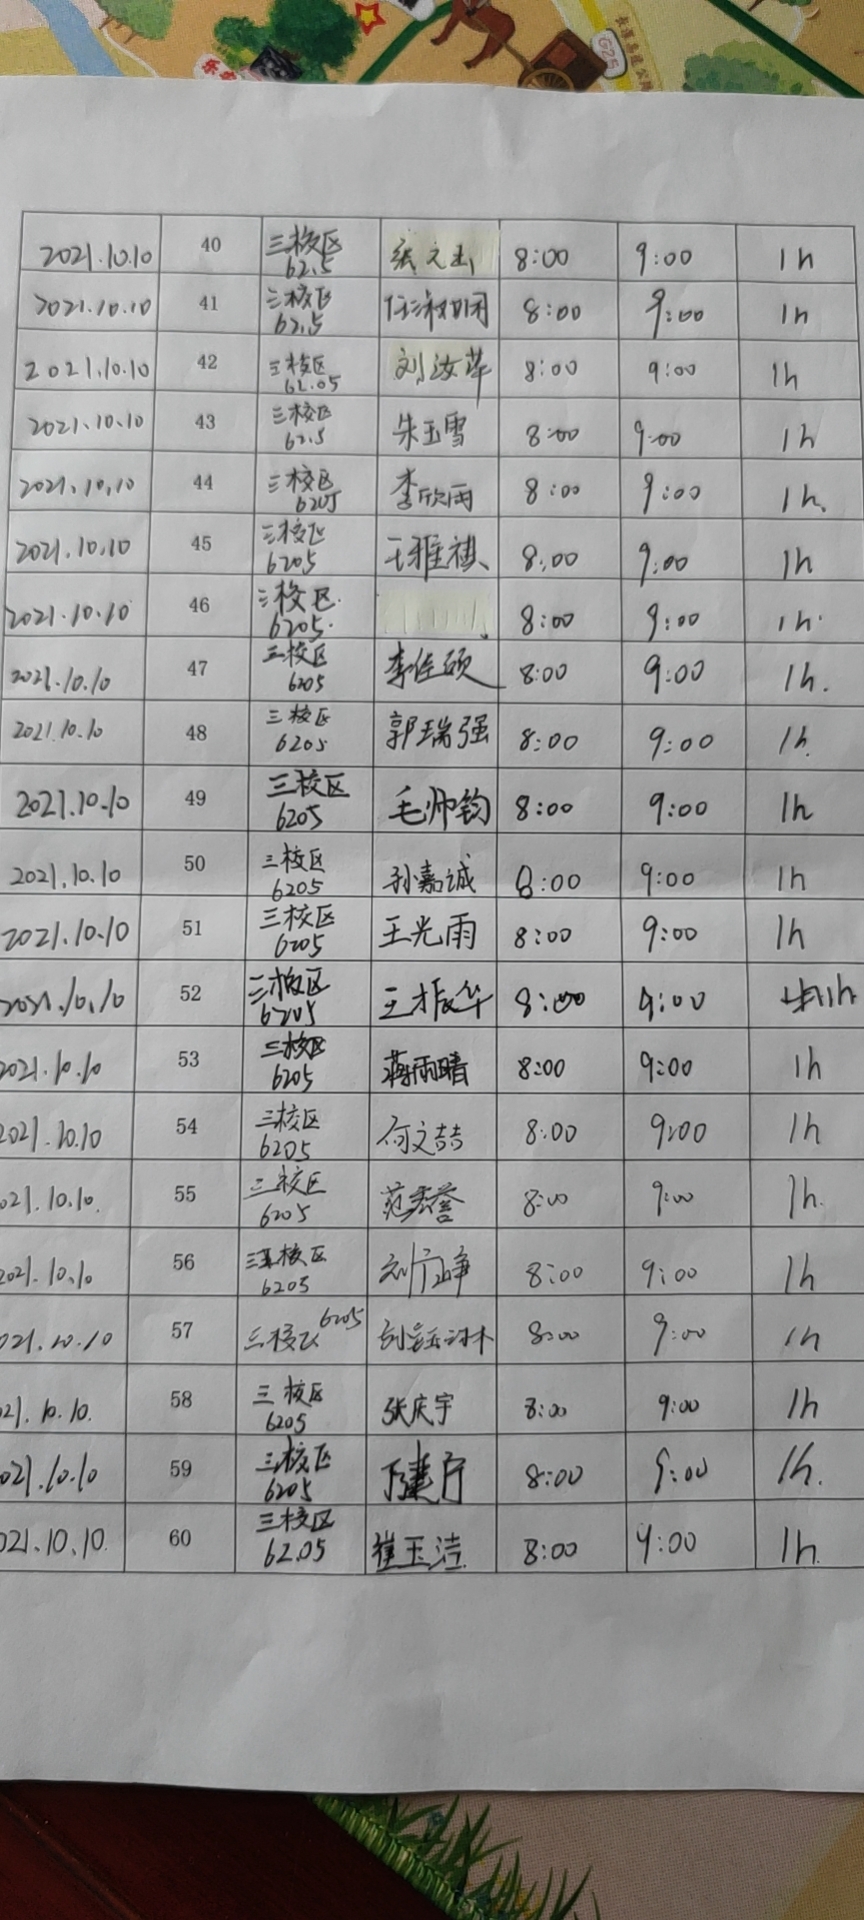 G25
2021.10.10 40 三校区 62.5 8:00 9:00 1h
2021.10.10 41 三校区 62.5 8:00 9:00 1h
2021.10.10 42 三校区 62.05 刘汝苹 8:00 9:00 1h
2021.10.10 43 三校区 62.5 朱玉雪 8:00 9:00 1h
2021.10.10 44 三校区 6205 李欣雨 8:00 9:00 1h.
2021.10.10 45 三校区 6205 王雅祺 8:00 9:00 1h
2021.10.10 46 三校区 6205 8:00 9:00 1h
2021.10.10 47 三校区 6205 李佳硕 8:00 9:00 1h.
2021.10.10 48 三校区 6205 郭瑞强 8:00 9:00 1h.
2021.10.10 49 三校区 6205 毛帅钧 8:00 9:00 1h
2021.10.10 50 三校区 6205 孙嘉诚 8:00 9:00 1h
2021.10.10 51 三校区 6205 王光雨 8:00 9:00 1h
2021.10.10 52 三校区 6205 王振华 8:00 9:00 1h
2021.10.10 53 三校区 6205 蒋雨晴 8:00 9:00 1h
2021.10.10 54 三校区 6205 何文喆 8:00 9:00 1h
021.10.10. 55 三校区 6205 范秀誉 8:00 9:00 1h.
2021.10.10 56 三校区 6205 8:00 9:00 1h
021.10.10 57 三校区 6205 8:00 9:00 1h
21.10.10. 58 三校区 6205 张庆宇 8:00 9:00 1h
021.10.10 59 三校区 6205 8:00 9:00 1h.
021.10.10. 60 三校区 62.05 崔玉洁 8:00 9:00 1h.